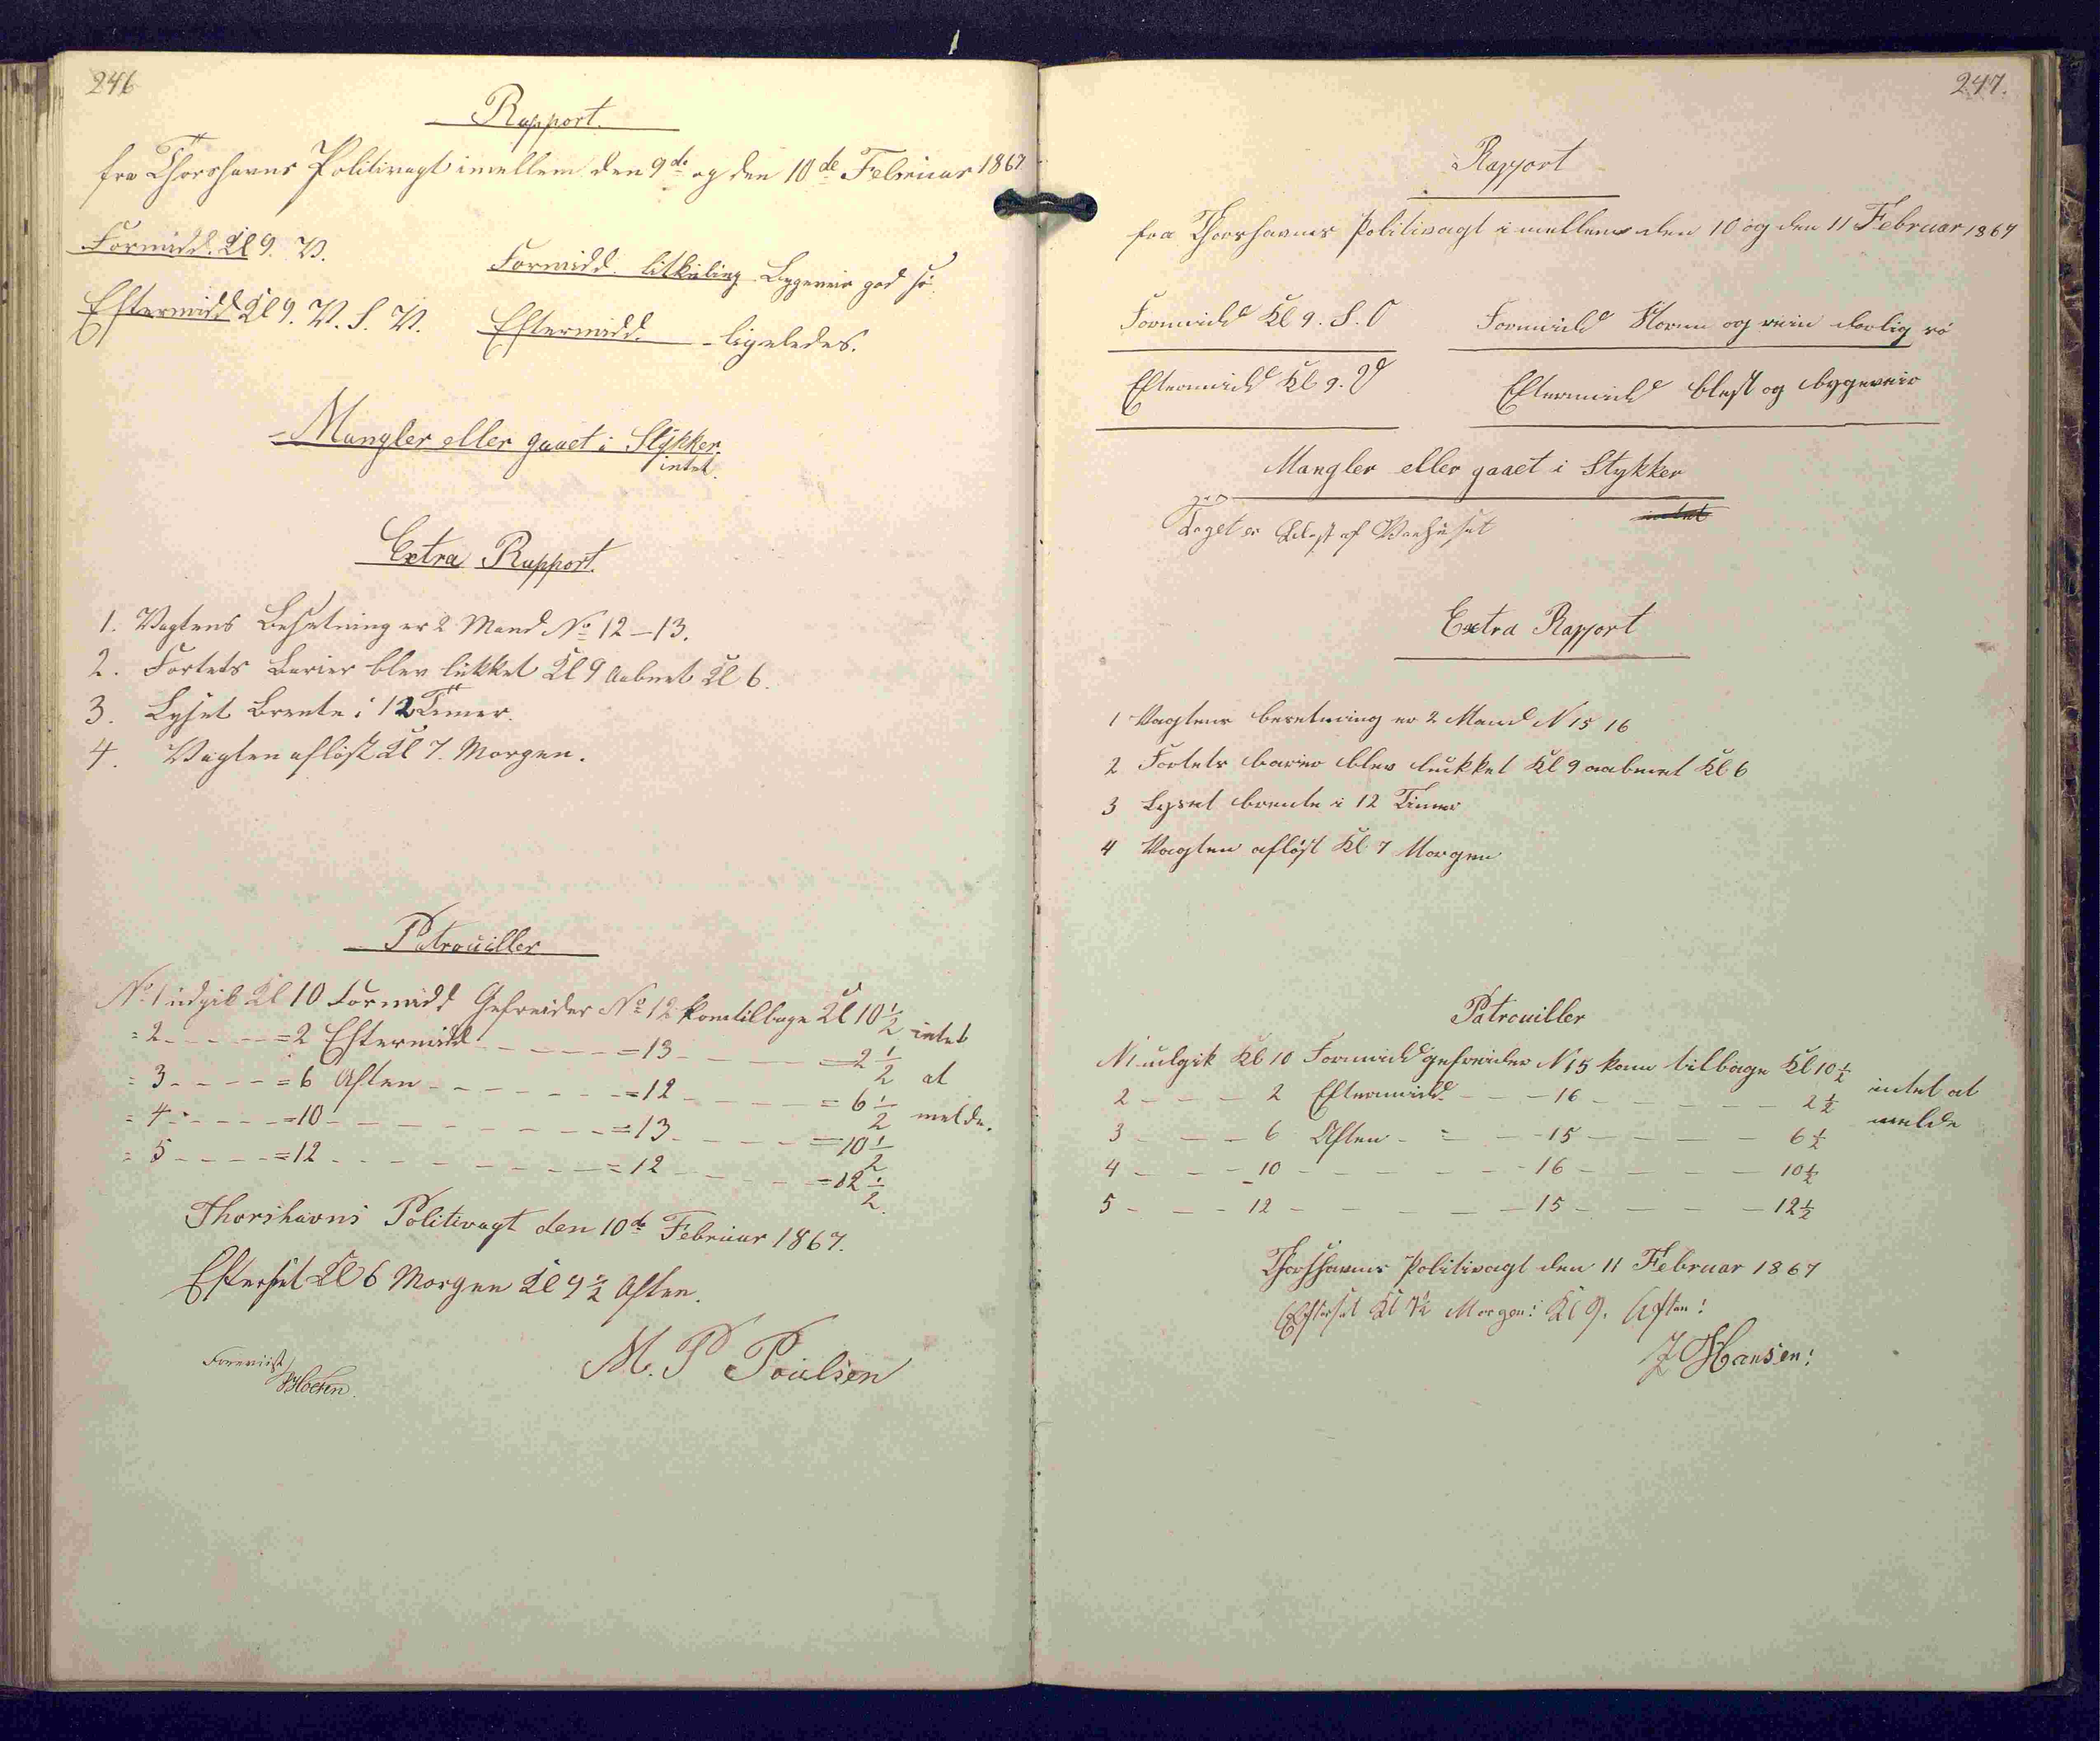 246
Rapport.
fra Thorshavns Politivagt imellem den 9de og den 10de Februar 1867
Formidd. Kl 9. V.
Formidd. litkuling Bygeveir god sö.
Eftermidd Kl 9. V. S. V.
Eftermidd. ligeledes.
Mangler eller gaaet i Stÿkker.
intet.
Extra Rapport.
1. Vagtens Besetning er 2 Mand No 12-13.
2. Fortets Barier blev lukket Kl 9 Aabnet Kl 6.
3. Lyset Brente i 12 Timer.
4. Vagten aflöst Kl 7. Morgen.
Patrouiller
No 1 udgik Kl 10 Formidd Gefreider No 12 kom tilbage Kl 10 1/2 intet
= 2 - - - - = 2 Eftermidd - - - - = 13 - - - - = 2 1/2 at
= 3 - - - - = 6 Aften - - - - - = 12 - - - - = 6 1/2 melde.
= 4 - - - - = 10 - - - - - - - = 13 - - - - = 10 1/2
= 5 - - - - = 12 - - - - - - - = 12 - - - - = 12 1/2.
Thorshavns Politivagt den 10de Februar 1867.
Efterset Kl 6 Morgen Kl 9 1/2 Aften.
M. P Poulsen
Foreviist
247.
Rapport
fra Thorshavns Politivagt i mellem den 10 og den 11 Februar 1867
Formidd Kl 9. S. O
Formidd Storm og rein dorlig sö
Eftermidd Kl 9. V
Eftermidd blest og bygeveir
Mangler eller gaaet i Stykker
intet
Taget er blest af
Extra Rapport
1 Vagtens besetning er 2 Mand N 15 16
2 Fortets barier blev luckket Kl 9 aabenet Kl 6
3 Lyset brente i 12 Timer
4 Vagten aflöst Kl 7 Morgen
Patrouiller
N 1 udgik Kl 10 Formidd gefreider N 15 kom tilbage Kl 10 1/2
2 - - - 2 Eftermidd - - - 16 - - - - - 2 1/2 intet at
3 - - - 6 Aften - - - 15 - - - - - 6 1/2 melde
4 - - - 10 - - - - - - 16 - - - - - 10 1/2
5 - - - 12 - - - - - - 15 - - - - - 12 1/2
Thorshavns Politivagt den 11 Februar 1867
Efterset Kl 7 1/2 Morgen: Kl 9. Aften:
J Hansen: